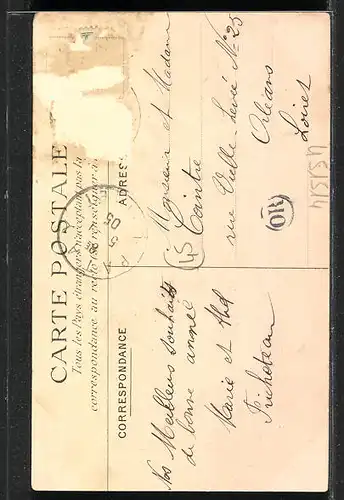 CARTE POSTALE
Tous les Pays étrangers n'acceptent pas la
correspondance au recto (se renseigner à
CORRESPONDANCE
ADRESSE
Nos Meilleurs Souhaits
de bonne année
Marie et
Monsieur et Madame
Cointre
rue Vieille-Levée No 25
Orléans
Loiret
OR
45
5
05